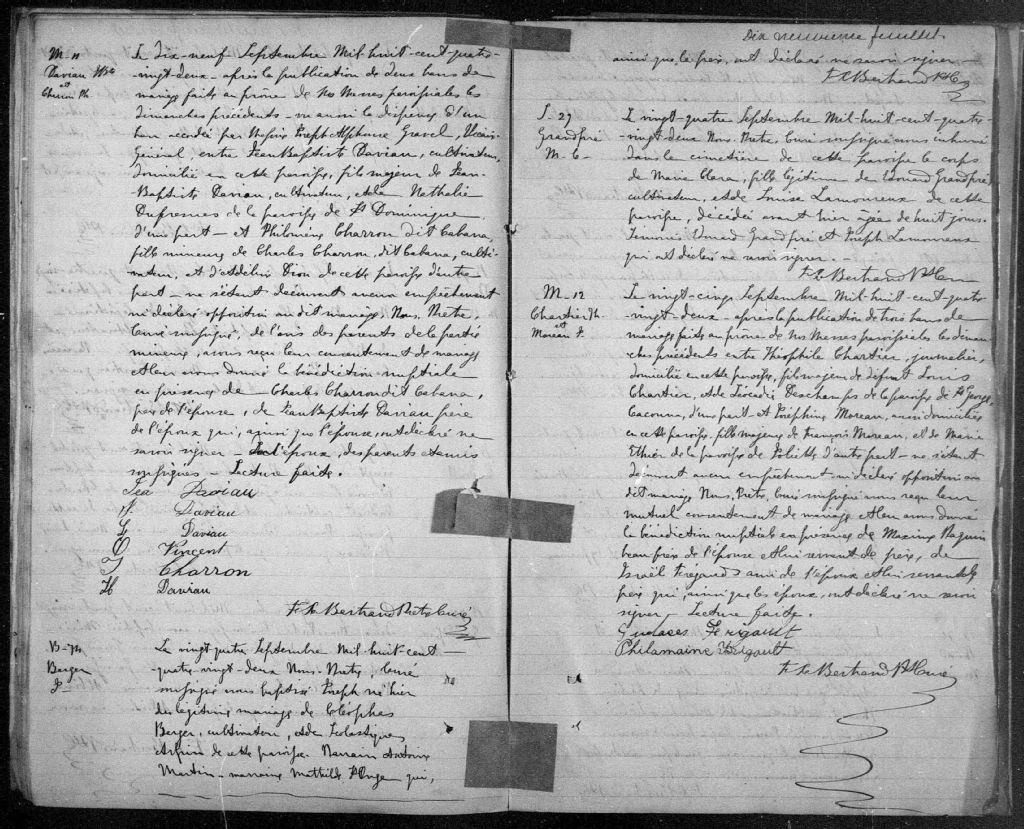 M_11
Davian Bte
et
Charron Ph.
Le dix-neuf Septembre Mil-huit-cent-quatre-
vingt-deux - après la publication de deux bans de
mariage faits au prône de Nos Messes paroissiales les
dimanches précédents - vu aussi la dispense d'un
ban accordée par Messire Joseph Alphonse Gravel, Vicaire
Général, entre Jean Baptiste Davian, cultivateur,
domicilié en cette paroisse, fils majeur de Jean-
Baptiste Davian, cultivateur, et de Nathalie
Dufresnes de la paroisse de St Dominique
d'une part - et Philomène Charron dit Cabana,
fille mineure de Charles Charron dit Cabana, culti-
vateur, et d'Adéline Dion de cette paroisse d'autre
part - ne s'étant découvert aucun empêchement
ni déclaré opposition au dit mariage, Nous, Prêtre,
Curé soussigné, de l'avis des parents de la partie
mineure, avons reçu leur consentement de mariage
et leur avons donné la bénédiction nuptiale
en présence de Charles Charron dit Cabana,
père de l'épouse, de Jean Baptiste Davian père
de l'époux qui, ainsi que l'épouse, ont déclaré ne
savoir signer - l'époux, des parents et amis
soussignés - Lecture faite.
Davian
Davian
G Davian
O Vincent
Charron
H Davian
F. X. Bertrand Ptre Curé
B-74
Berger
J.
Le vingt-quatre Septembre Mil-huit-cent-
quatre-vingt-deux Nous Prêtre, Curé
soussigné avons baptisé Joseph né hier
du légitime mariage de Cléophas
Berger, cultivateur, et de Scolastique
de cette paroisse. Parrain Antoine
Martin - marraine Mathilde St Onge qui,
Dix neuvième feuillet.
ainsi que le père, ont déclaré ne savoir signer -
F. X. Bertrand Ptre C.
S. 27
Grandpré
M. C.
Le vingt-quatre Septembre Mil-huit-cent-quatre-
vingt-deux Nous, Prêtre, Curé soussigné avons inhumé
dans le cimetière de cette paroisse le corps
de Marie Clara, fille légitime de Grandpré,
cultivateur, et de Louise Lamoureux de cette
paroisse, décédée avant hier âgée de huit jours.
Témoins Grandpré et Joseph Lamoureux
qui ont déclaré ne savoir signer. -
F. X. Bertrand Ptre Cu
M_12
Chartier Th.
et
Moreau J.
Le vingt-cinq Septembre Mil-huit-cent-quatre-
-vingt-deux - après la publication de trois bans de
mariage faits au prône de Nos Messes paroissiales les diman-
ches précédents entre Théophile Chartier, journalier,
domicilié en cette paroisse, fils majeur de défunt Louis
Chartier, et de Léocadie Deschamps de la paroisse de St George,
Cacouna, d'une part - et Joséphine Moreau, aussi domiciliée
en cette paroisse, fille majeure de François Moreau, et de Marie
Ethier de la paroisse de Joliette d'autre part - ne s'étant
découvert aucun empêchement ni déclaré opposition au
dit mariage, Nous, Prêtre, Curé soussigné avons reçu leur
mutuel consentement de mariage et leur avons donné
la bénédiction nuptiale en présence de Maxime
beau frère de l'épouse et lui servant de père, de
Israël ami de l'époux et lui servant de
père qui, ainsi que les époux, ont déclaré ne savoir
signer - Lecture faite.
Philamaine
F. X. Bertrand Ptre Curé